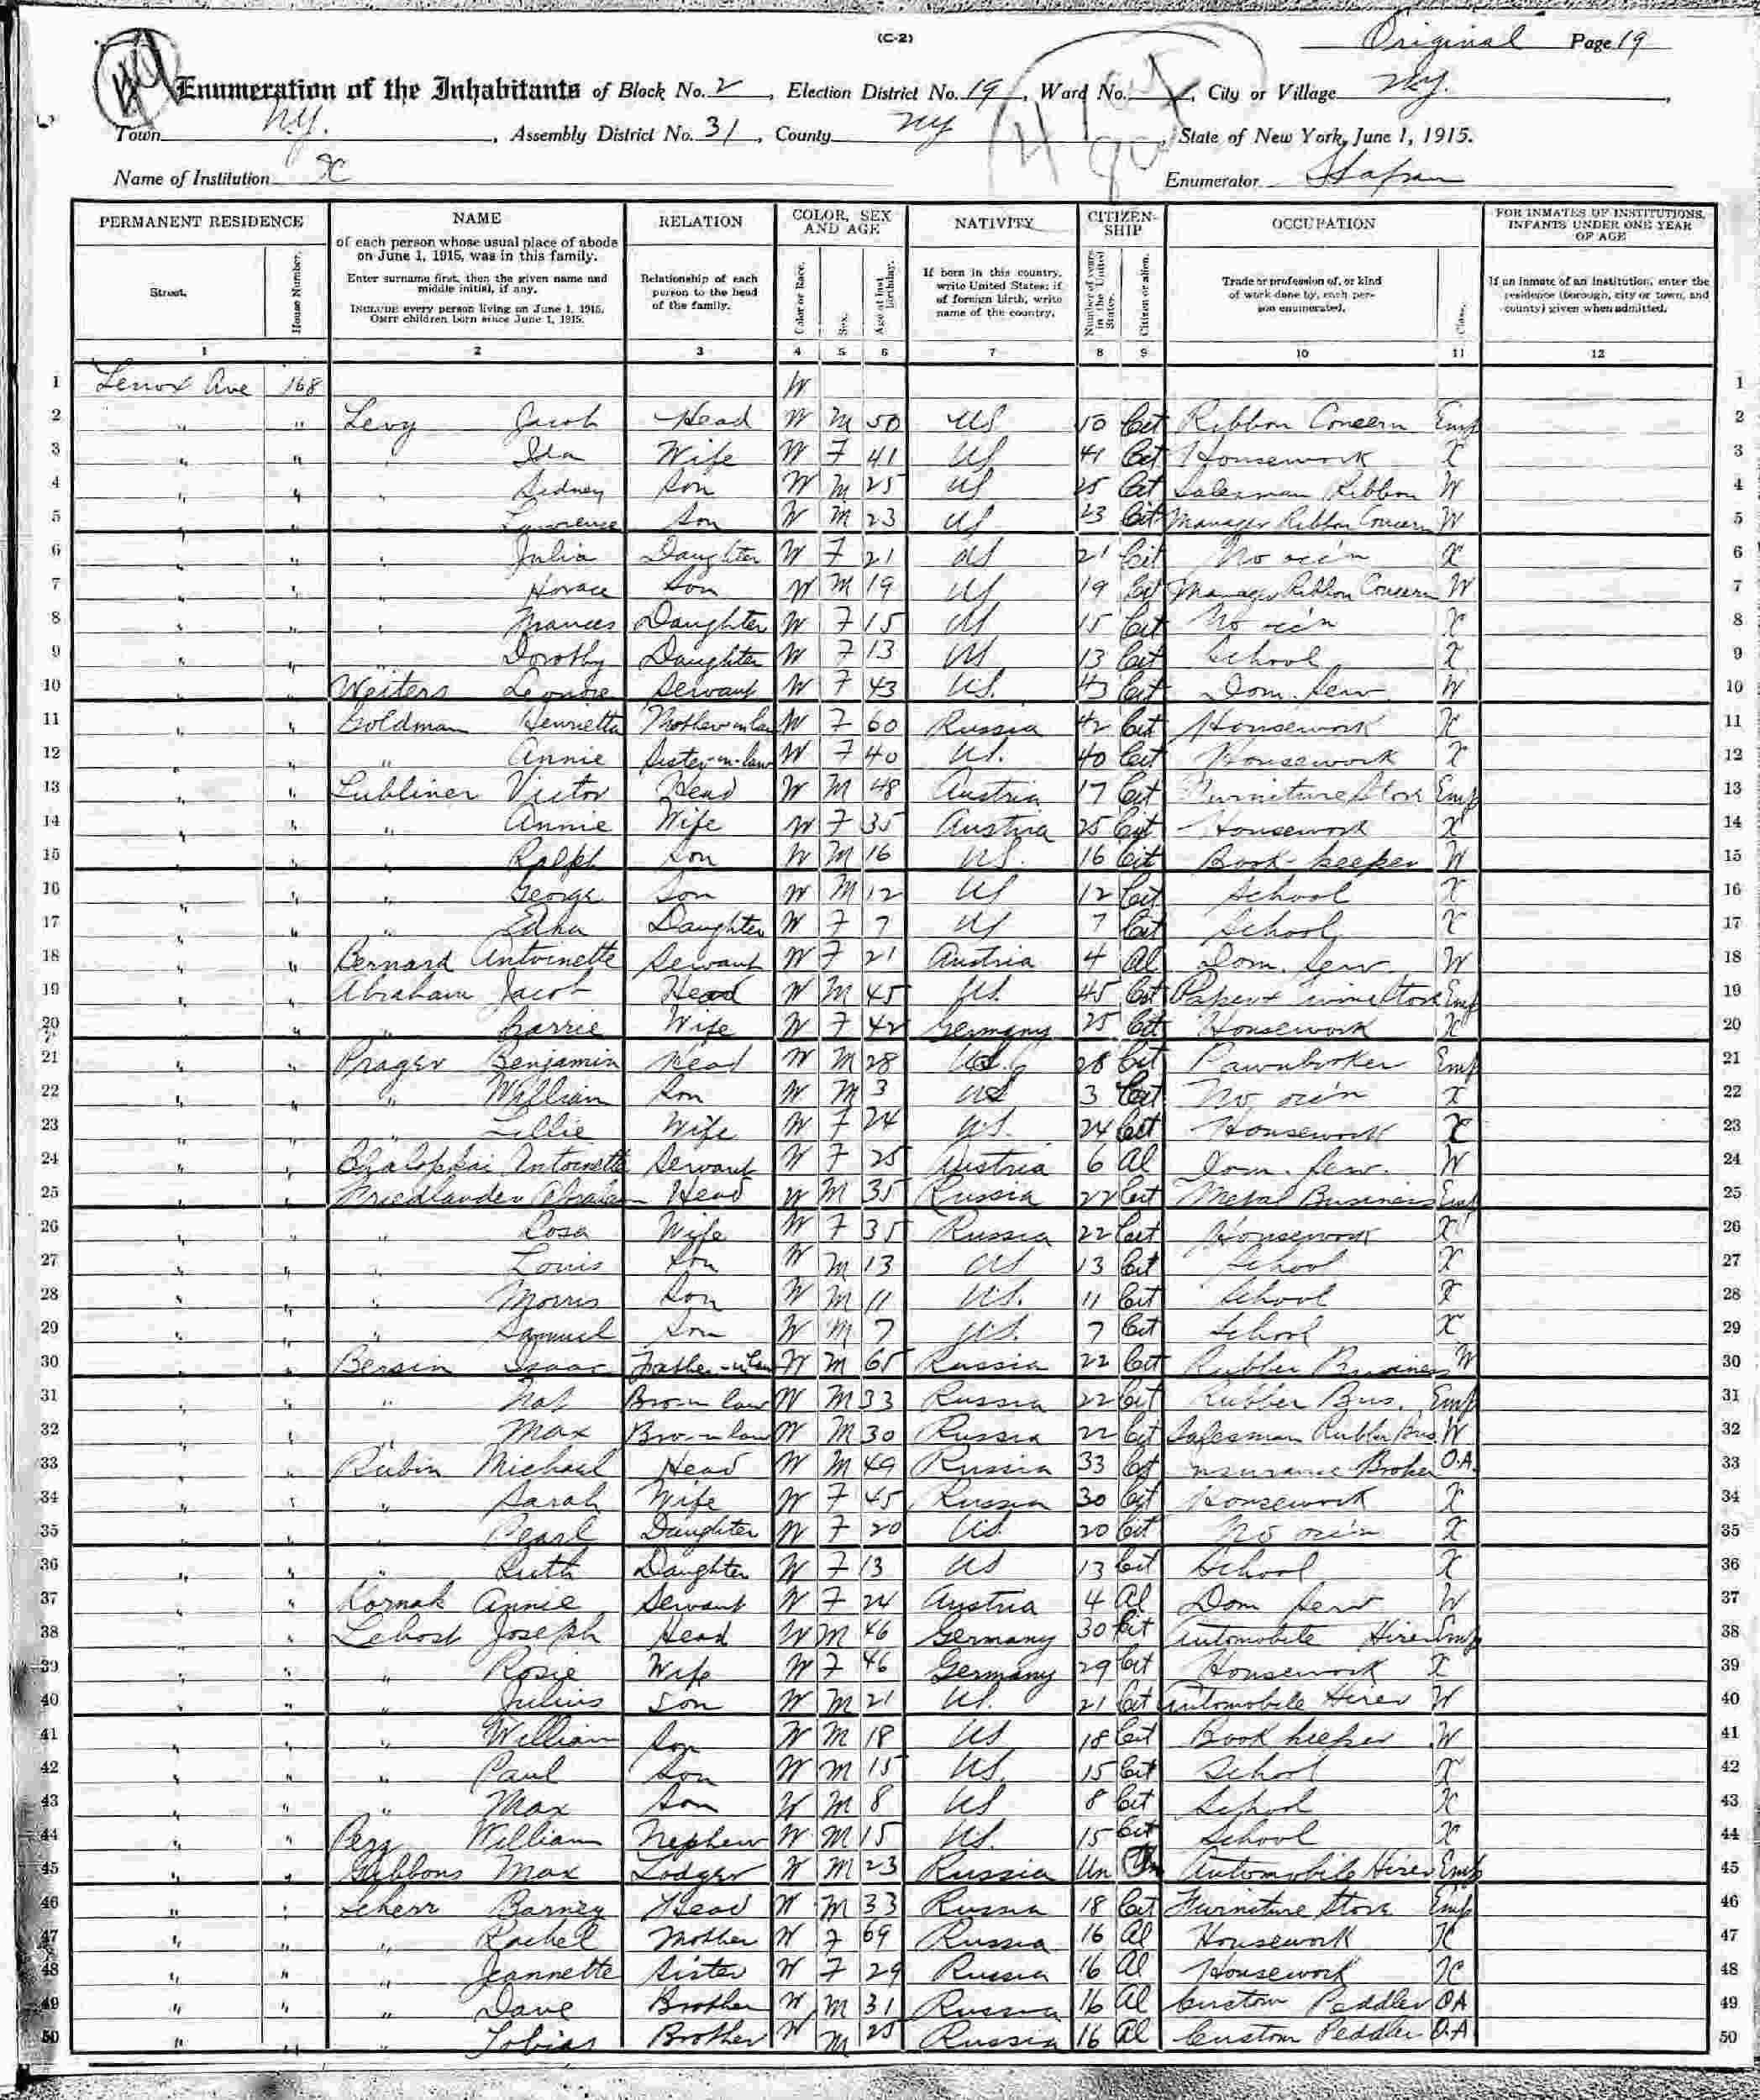 (C-2)
Original Page 19
Enumeration of the Inhabitants of Block No. 2, Election District No. 19, Ward No. , City or Village N.Y.,
Town N.Y., Assembly District No. 31, County NY, State of New York, June 1, 1915.
Name of Institution X Enumerator
PERMANENT RESIDENCE NAME RELATION COLOR, SEX AND AGE NATIVITY CITIZENSHIP OCCUPATION FOR INMATES OF INSTITUTIONS, INFANTS UNDER ONE YEAR OF AGE
Street. House Number. of each person whose usual place of abode on June 1, 1915, was in this family. Enter surname first, then the given name and middle initial, if any. INCLUDE every person living on June 1, 1915. OMIT children born since June 1, 1915. Relationship of each person to the head of the family. Color or Race. Sex. Age at last birthday. If born in this country, write United States; if of foreign birth, write name of the country. Number of years in the United States. Citizen or alien. Trade or profession of, or kind of work done by, each person enumerated. Class. If an inmate of an institution, enter the residence (borough, city or town, and county) given when admitted.
1 2 3 4 5 6 7 8 9 10 11 12
1 Lenox Ave 168 W 1
2 " " Levy Jacob Head W M 50 US 50 Cit Ribbon Concern Emp 2
3 " " " Ida Wife W F 41 US 41 Cit Housework X 3
4 " " " Sidney Son W M 25 US 25 Cit Salesman Ribbon W 4
5 " " " Lawrence Son W M 23 US 23 Cit Manager Ribbon Concern W 5
6 " " " Julia Daughter W F 21 US 21 Cit No occ'n X 6
7 " " " Horace Son W M 19 US 19 Cit Manager Ribbon Concern W 7
8 " " " Frances Daughter W F 15 US 15 Cit No occ'n X 8
9 " " " Dorothy Daughter W F 13 US 13 Cit School X 9
10 " " Weiters Leonore Servant W F 43 US. 43 Cit Dom. Serv W 10
11 " " Goldman Henrietta Mother in law W F 60 Russia 42 Cit Housework X 11
12 " " " Annie Sister-in-law W F 40 US. 40 Cit Housework X 12
13 " " Lubliner Victor Head W M 48 Austria 17 Cit Furniture Store Emp 13
14 " " " Annie Wife W F 35 Austria 25 Cit Housework X 14
15 " " " Ralph Son W M 16 US. 16 Cit Book-keeper W 15
16 " " " George Son W M 12 US 12 Cit School X 16
17 " " " Edna Daughter W F 7 US 7 Cit School X 17
18 " " Bernard Antoinette Servant W F 21 Austria 4 Al Dom. Serv. W 18
19 " " Abraham Jacob Head W M 45 US. 45 Cit Paper + Twine Store Emp 19
20 " " " Carrie Wife W F 42 Germany 25 Cit Housework X 20
21 " " Prager Benjamin Head W M 28 US 28 Cit Pawnbroker Emp 21
22 " " " William Son W M 3 US 3 Cit No occ'n X 22
23 " " " Lillie Wife W F 24 U.S. 24 Cit Housework X 23
24 " " Antoinette Servant W F 25 Austria 6 Al Dom. Serv. W 24
25 " " Friedlander Abraham Head W M 35 Russia 22 Cit Metal Business Emp 25
26 " " " Rosa Wife W F 35 Russia 22 Cit Housework X 26
27 " " " Louis Son W M 13 US 13 Cit School X 27
28 " " " Morris Son W M 11 US. 11 Cit School X 28
29 " " " Samuel Son W M 7 US. 7 Cit School X 29
30 " " Bersin Isaac Father-in-law W M 65 Russia 22 Cit Rubber Business W 30
31 " " " Nat Bro in law W M 33 Russia 22 Cit Rubber Bus. Emp 31
32 " " " Max Bro in law W M 30 Russia 22 Cit Salesman Rubber Bus. W 32
33 " " Rubin Michael Head W M 49 Russia 33 Cit Insurance Broker O.A. 33
34 " " " Sarah Wife W F 45 Russia 30 Cit Housework X 34
35 " " " Pearl Daughter W F 20 US. 20 Cit No occ'n X 35
36 " " " Ruth Daughter W F 13 US 13 Cit School X 36
37 " " Kornak Annie Servant W F 24 Austria 4 Al Dom Serv W 37
38 " " Lebost Joseph Head W M 46 Germany 30 Cit Automobile Hirer Emp 38
39 " " " Rosie Wife W F 46 Germany 29 Cit Housework X 39
40 " " " Julius Son W M 21 US. 21 Cit Automobile Hirer W 40
41 " " " William Son W M 18 US 18 Cit Book keeper W 41
42 " " " Paul Son W M 15 US. 15 Cit School X 42
43 " " " Max Son W M 8 US 8 Cit School X 43
44 " " William Nephew W M 15 US. 15 Cit School X 44
45 " " Gibbons Max Lodger W M 23 Russia Un Un Automobile Hirer Emp 45
46 " " Scherr Barney Head W M 33 Russia 18 Cit Furniture Store Emp 46
47 " " " Rachel Mother W F 69 Russia 16 Al Housework X 47
48 " " " Jeannette Sister W F 29 Russia 16 Al Housework X 48
49 " " " Dave Brother W M 31 Russia 16 Al Custom Peddler OA 49
50 " " " Tobias Brother W M 25 Russia 16 Al Custom Peddler O.A 50